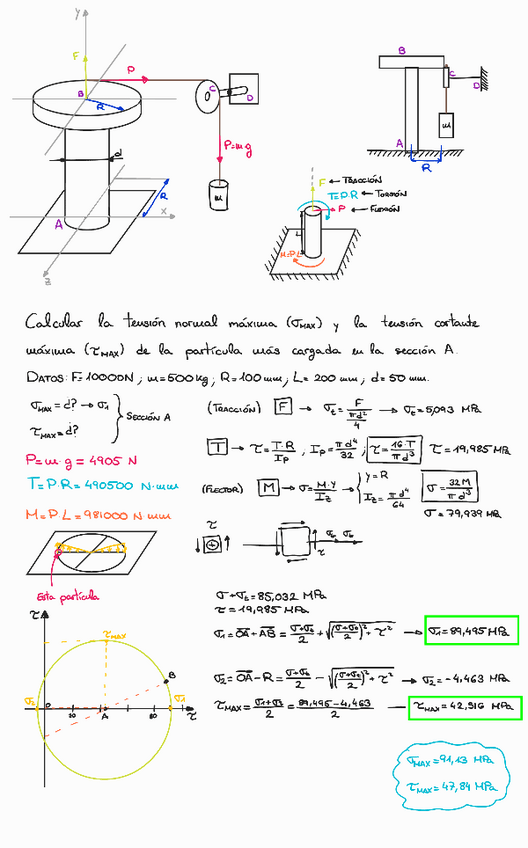 y
F
P
B
R
C
D
d
P=mg
m
R
A
x
z
B
C
D
m
A
R
F ← TRACCIÓN
T=P·R ← TORSIÓN
P ← FLEXIÓN
L
M=P·L
Calcular la tensión normal máxima (σMAX) y la tensión cortante
máxima (τMAX) de la partícula más cargada en la sección A.
DATOS: F=10000N ; m=500kg ; R=100mm ; L=200mm ; d=50mm.
σMAX=¿? → σ1
τMAX=¿?
} SECCIÓN A
P=m·g = 4905 N
T=P·R = 490500 N·mm
M=P·L = 981000 N·mm
(TRACCIÓN) F → σt = F / (πd²/4) → σt=5,093 MPa
T → τ = T·R / IP , IP = πd⁴/32 ; τ = 16·T / πd³ τ = 19,985 MPa
(FLECTOR) M → σ = M·y / IZ → { y=R IZ = πd⁴/64 σ = 32M / πd³
σ = 79,939 MPa
Esta partícula
τ
σt σf
τ
σ+σt = 85,032 MPa
τ = 19,985 MPa
σ1 = OA + AB = (σ+σt)/2 + √(((σ+σt)/2)² + τ²) → σ1=89,495 MPa
σ2 = OA − R = (σ+σt)/2 − √(((σ+σt)/2)² + τ²) → σ2=−4,463 MPa
τMAX = (σ1+σ2)/2 = (89,495−4,463)/2 → τMAX=42,516 MPa
τ
τMAX
B
σ2
O
20
A
80
σ1
τ
σMAX=91,13 MPa
τMAX=47,84 MPa